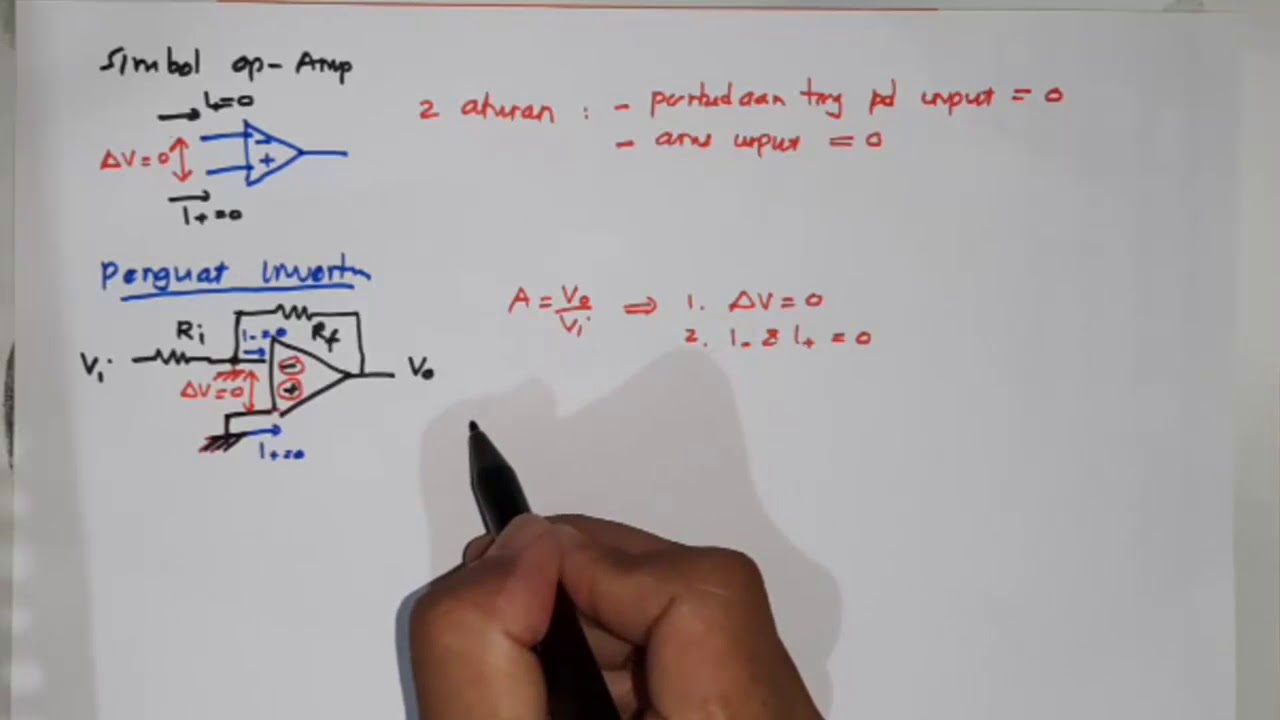 Simbol op-Amp
I-=0
ΔV=0
- +
I+=0
2 aturan : - perbedaan teg pd input = 0
- arus input = 0
Penguat Inverting
Ri
I-=0
Rf
Vi
Vo
ΔV=0
- +
I+=0
A = Vo/Vi ⇒ 1. ΔV = 0
2. I- & I+ = 0